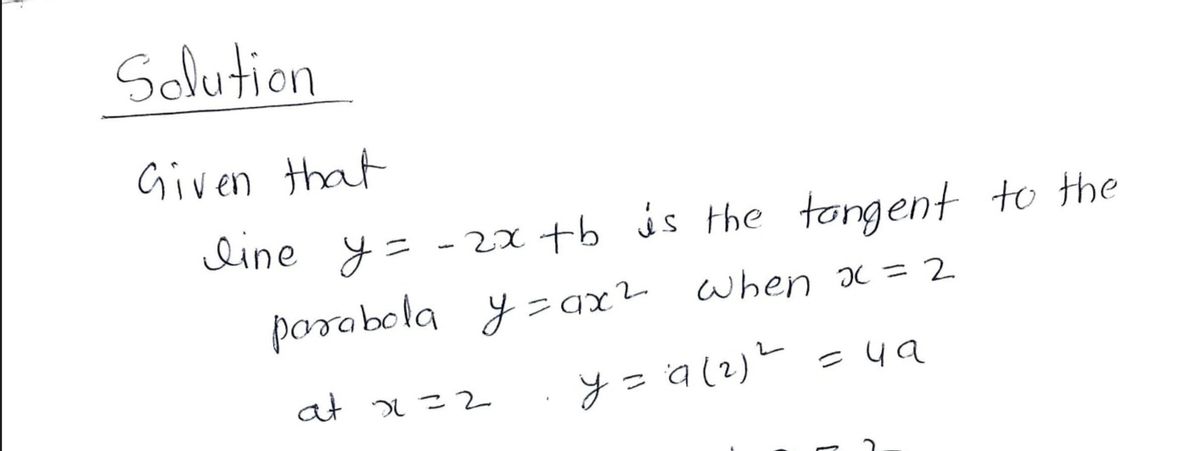 Solution
Given that
line y = -2x + b is the tangent to the
parabola y = ax² when x = 2
at x = 2 . y = a(2)² = 4a